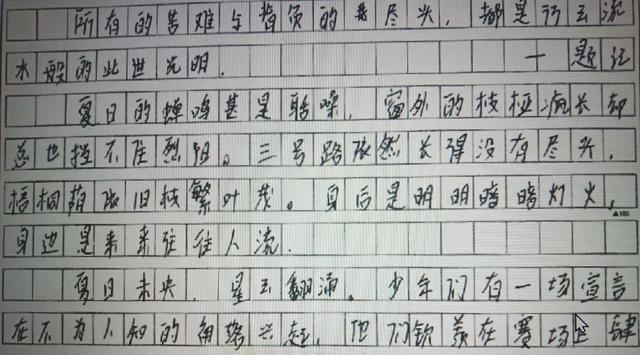 所有的苦难与背负的尽头,都是行云流
水般的此世光明. 一题记
夏日的蝉鸣甚是聒噪,窗外的枝桠疯长却
总也挡不住烈阳。三号路依然长得没有尽头,
梧桐荫依旧枝繁叶茂。身后是明明暗暗灯火,
▲100
身边是来来往往人流.
夏日未央,星云翻涌。少年们有一场宣言
在不为人知的角落兴起,他们钦羡在赛场上肆